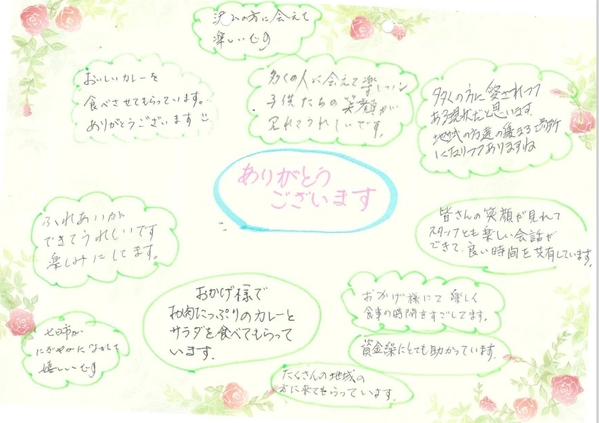 沢山の方に会えて
楽しいです
おいしいカレーを
食べさせてもらっています。
ありがとうございます
多くの人に会えて楽しい
子供たちの笑顔が
見れてうれしいです。
多くの方に愛されつつ
ある現状だと思います
地域の方達の集まる場所
になりつつありますね
ありがとう
ございます
ふれあいが
できてうれしいです
楽しみにしてます。
皆さんの笑顔が見れて
スタッフとも楽しい会話が
できて、良い時間を共有しています。
おかげ様で
お肉たっぷりのカレーと
サラダを食べてもらって
います。
おかげ様にて楽しく
食事の時間をすごしてます。
資金築にとても助かっています。
七日市が
にぎやかになって
嬉しいです
たくさんの地域の
方に来てもらっています。